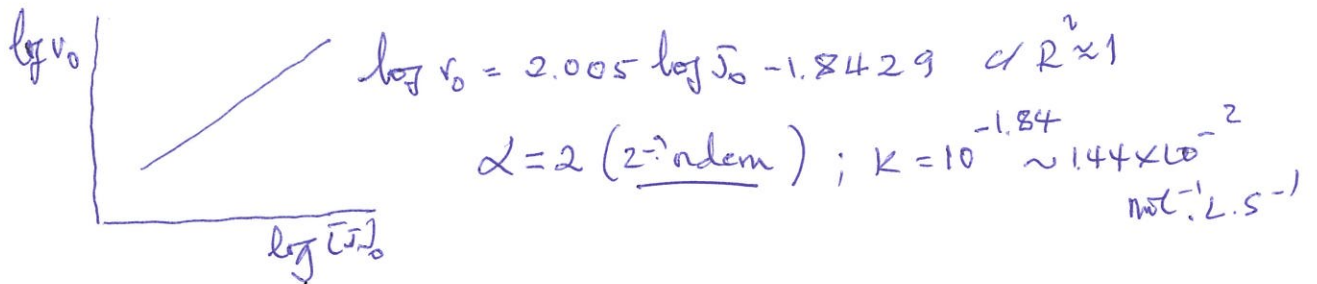 log v₀
log v₀ = 2.005 log J₀ - 1.8429 c/ R² ≈ 1
α = 2 (2ª ordem) ; K = 10^-1.84 ~ 1.44 × 10^-2
mol⁻¹.L.s⁻¹
log [J]₀